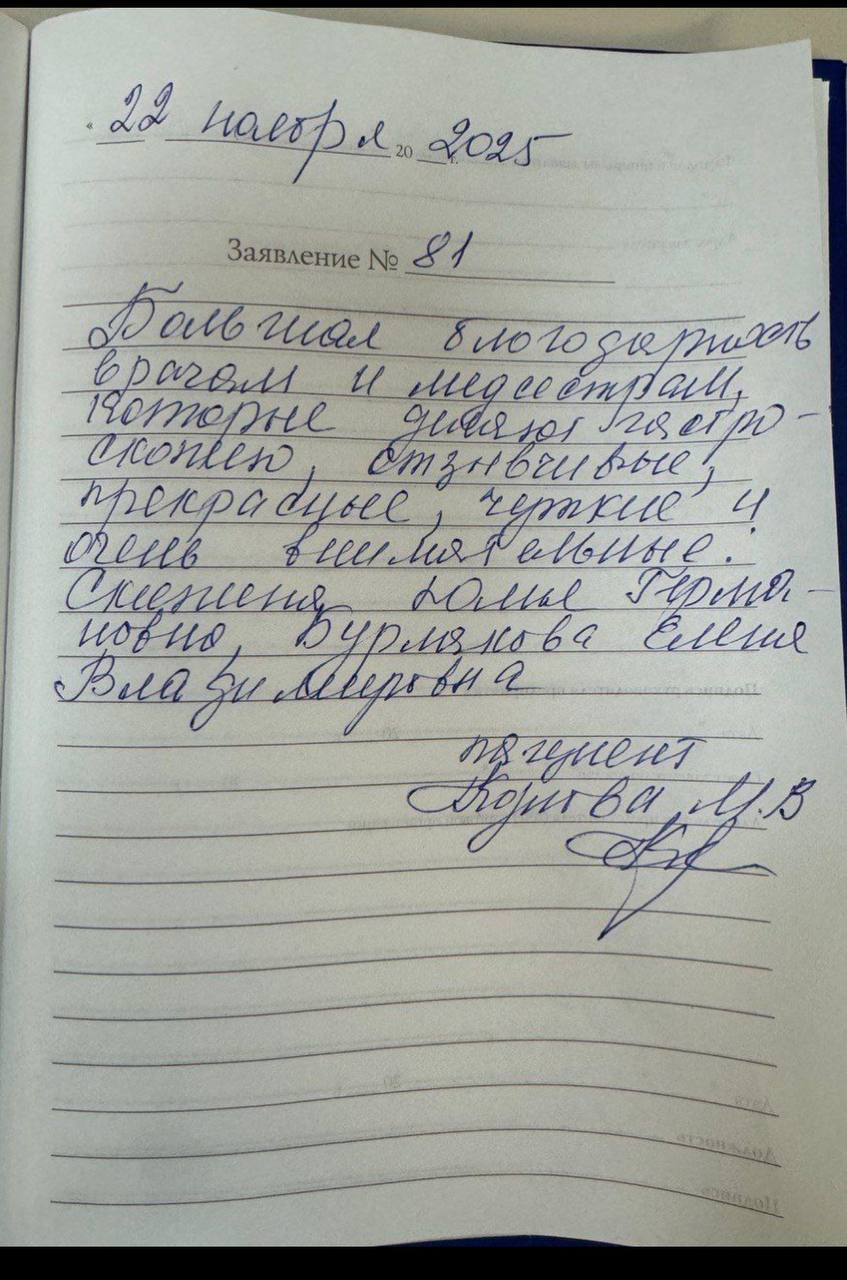 « 22 ноября 20 г. 2025
Заявление № 81
Большая благодарность
врачам и медсестрам,
которые делают гастро-
скопию, отзывчивые,
прекрасные, чуткие и
очень внимательные:
Герма-
новна, Бурмакова Елена
Владимировна
пациент
М.В